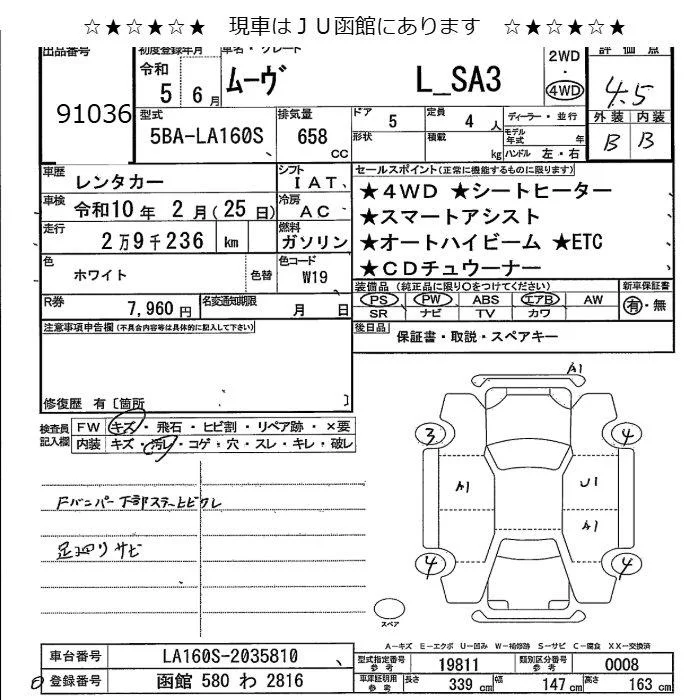 ☆★☆★☆★ 現車はＪＵ函館にあります ☆★☆★☆★
出品番号
91036
初度登録年月
令和
5 6 月
車名・グレード
ムーヴ L_SA3
2WD
・
4WD
評価点
4.5
外装 内装
B B
型式
5BA-LA160S
排気量
658
CC
ドア
5
定員
4 人
ディーラー・並行
形状
積載
kg
モデル年式
年
ハンドル 左・右
車歴
レンタカー
シフト
IAT
車検
令和10 年 2 月(25 日)
冷房
AC
走行
2万9千236 km
燃料
ガソリン
色
ホワイト
色替
色コード
W19
R券
7,960 円
名変通知期限
月 日
セールスポイント(正常に機能するものに限ります)
★４WD ★シートヒーター
★スマートアシスト
★オートハイビーム ★ETC
★ＣＤチュウーナー
装備品 (純正品に限り○をつけてください)
PS PW ABS エアB AW
SR ナビ TV カワ
新車保証書
有・無
後日品
保証書・取説・スペアキー
注意事項申告欄(不具合内容等は具体的に記入して下さい)
修復歴 有〔箇所 〕
検査員記入欄
FW キズ・飛石・ヒビ割・リペア跡・×要
内装 キズ・汚レ・コゲ・穴・スレ・キレ・破レ
Fバンパー下部ステーヒビワレ
足廻りサビ
A1
3 4
A1 U1
A1
4 4
スペア
A－キズ E－エクボ U－凹み W－補修跡 S－サビ C－腐食 XX－交換済
車台番号
LA160S-2035810
登録番号
函館 580 わ 2816
型式指定番号
参考
19811
類別区分番号
参考
0008
車庫証明用
参考
長さ 339 cm 幅 147 cm 高さ 163 cm